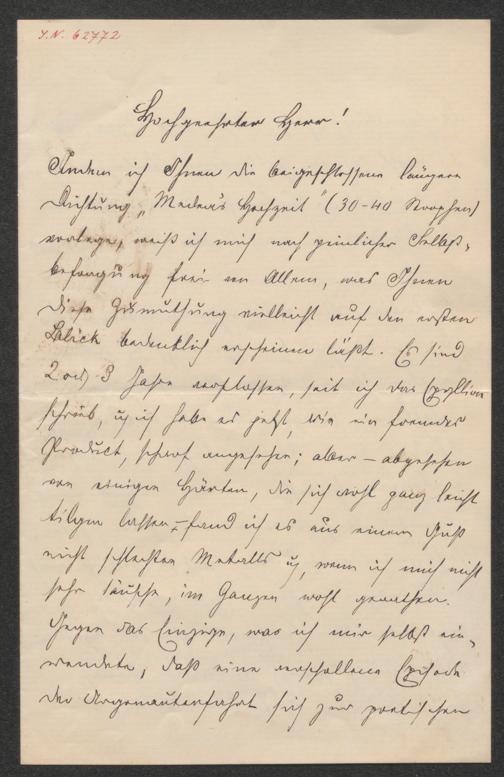 J.N. 62772
Hochgeehrter Herr!
Indem ich Ihnen die beigeschlossene längere
Dichtung „Medea's Hochzeit" (30-40 Strophen)
vorlege, weiß ich mich nach peinlicher Selbst-
befragung frei von Allem, was Ihnen
diese Zumuthung vielleicht auf den ersten
Blick bedenklich erscheinen läßt. Es sind
2 od. 3 Jahre verflossen, seit ich das Epyllion
schrieb, u. ich habe es jetzt, wie ein fremdes
Product, scharf angesehen; aber – abgesehen
von einigen Härten, die sich wohl ganz leicht
tilgen lassen – fand ich es aus einem Guß
nicht schlechten Metalls u., wenn ich mich nicht
sehr täusche, im Ganzen wohl gerathen.
Gegen das Einzige, was ich mir selbst ein-
wendete, daß eine verschollene Episode
der Argonautenfahrt sich zur poetischen